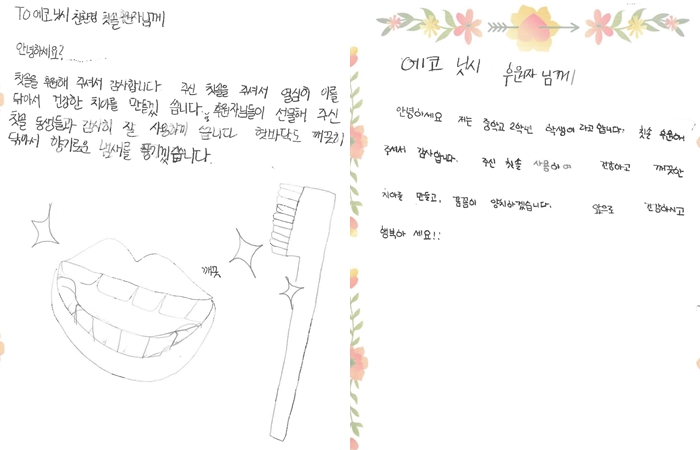 TO 에코 낫시 친환경 칫솔 후원자님께
안녕하세요?
칫솔을 후원해 주셔서 감사합니다 주신 칫솔을 주셔서 열심히 이를
닦아서 건강한 치아를 만들겠 습니다. 후원자님들이 선물해 주신
칫솔 동생들과 감사히 잘 사용하겠 습니다 혓바닥도 깨끗히
닦아서 향기로운 냄새를 풍기겠습니다.
깨끗
에코 낫시 후원자 님께
안녕하세요 저는 중학교 2학년 학생이라고 합니다? 칫솔 후원해
주셔서 감사합니다. 주신 칫솔 사용하여 건강하고 깨끗한
치아를 만들고, 꼼꼼이 양치하겠습니다. 앞으로 건강하시고
행복하 세요!!